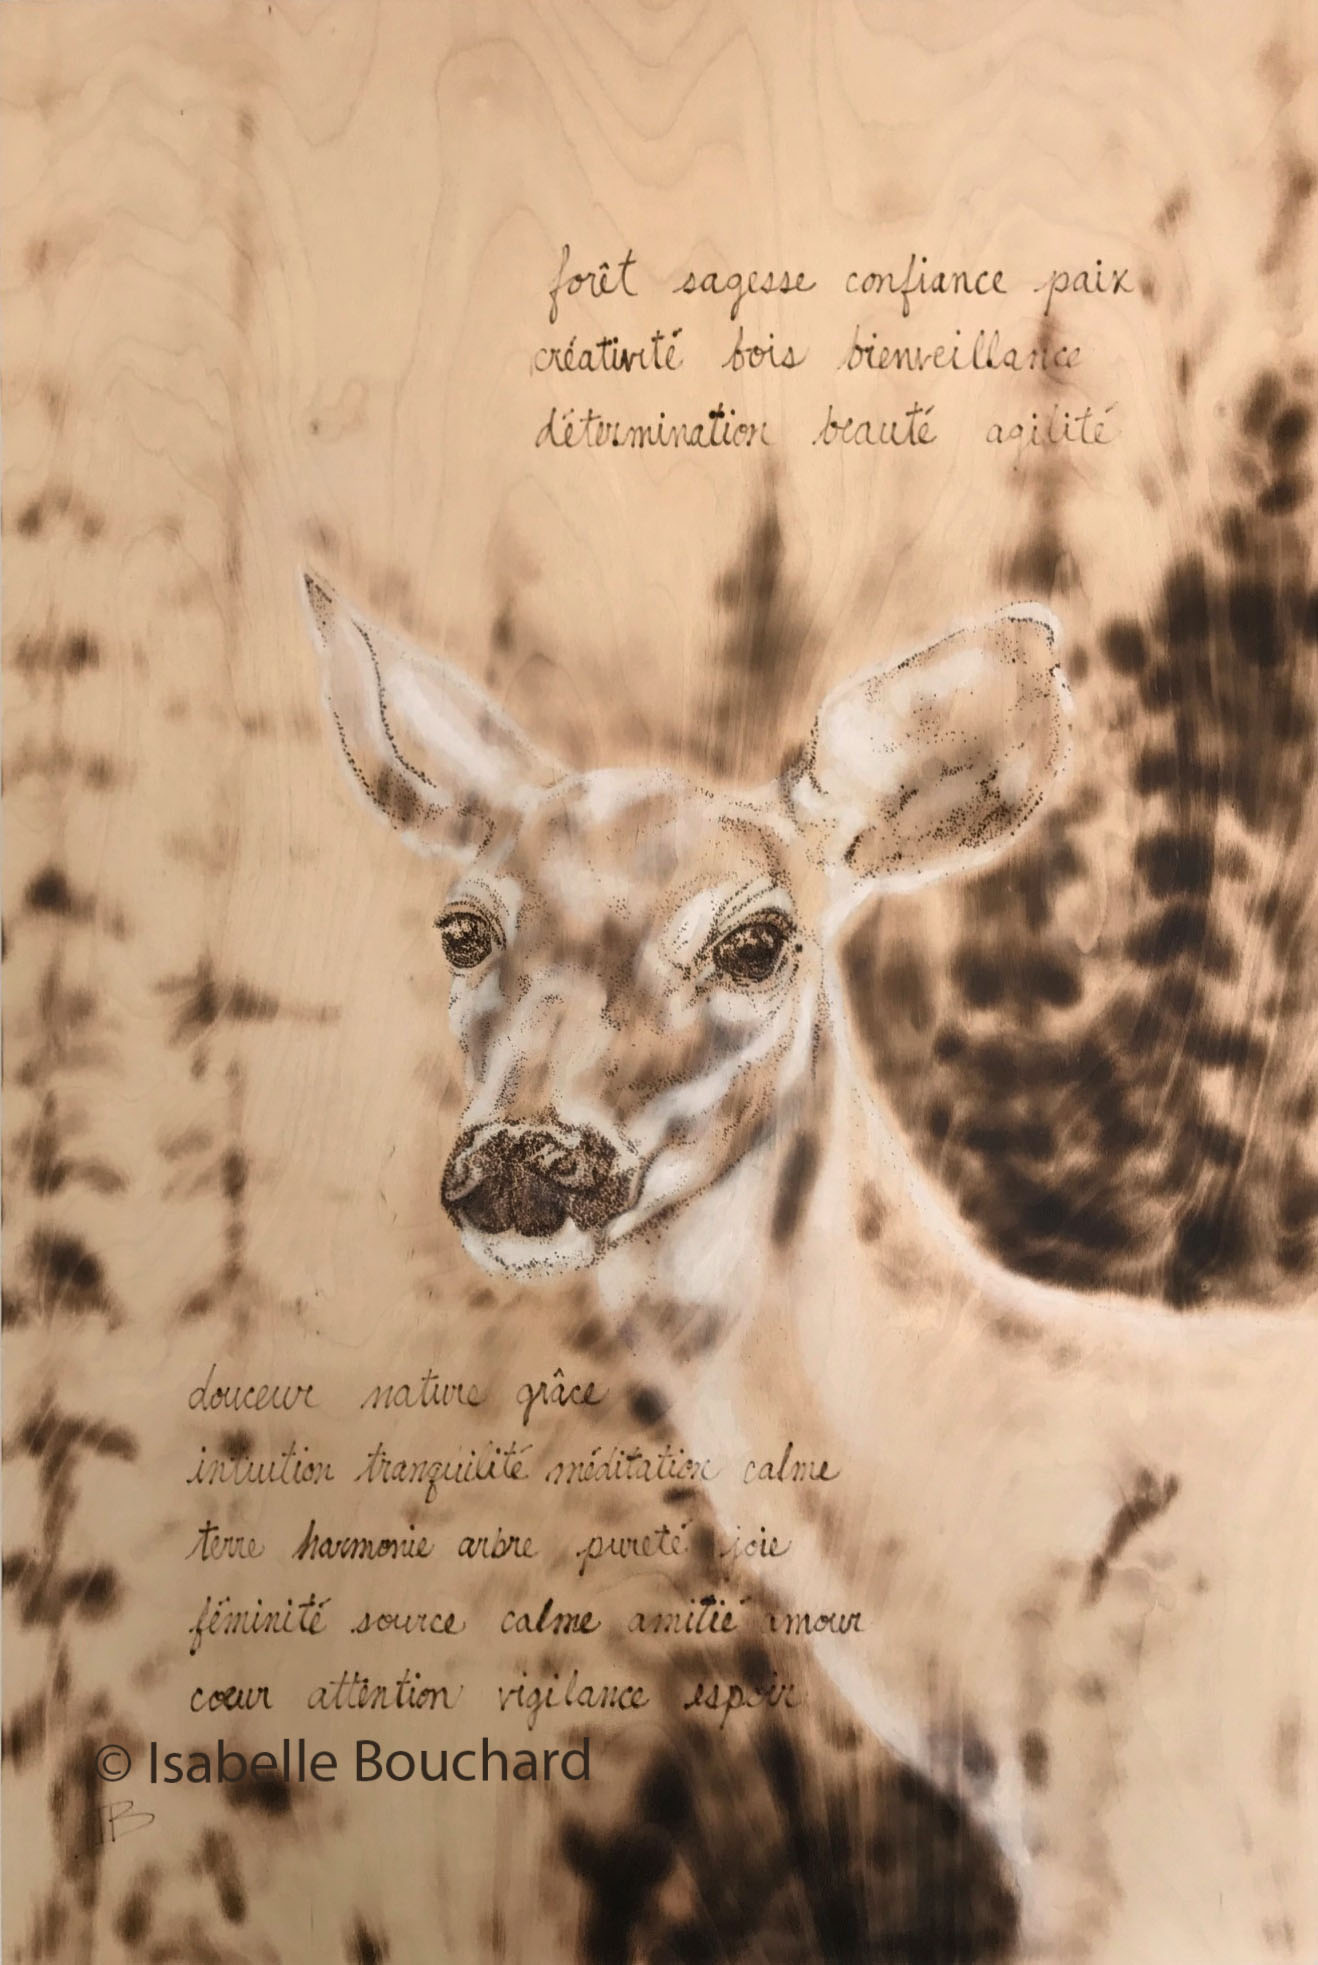 forêt sagesse confiance paix
créativité bois bienveillance
détermination beauté agilité
douceur nature grâce
intuition tranquilité méditation calme
terre harmonie arbre pureté joie
féminité source calme amitié amour
cœur attention vigilance espoir
© Isabelle Bouchard
IB